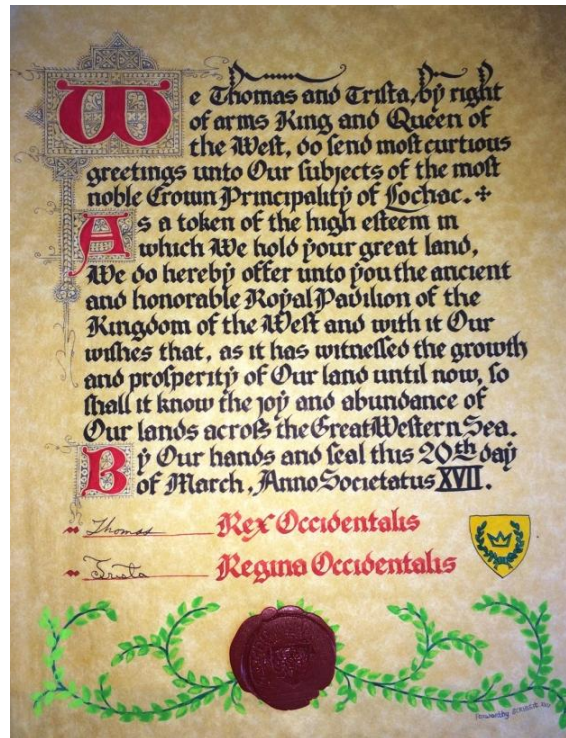 We Thomas and Trista, by right
of arms King and Queen of
the West, do send most curtious
greetings unto Our subjects of the most
noble Crown Principality of Lochac. +
As a token of the high esteem in
which We hold your great land,
We do hereby offer unto you the ancient
and honorable Royal Pavilion of the
Kingdom of the West and with it Our
wishes that, as it has witnessed the growth
and prosperity of Our land until now, so
shall it know the joy and abundance of
Our lands across the Great Western Sea.
By Our hands and seal this 20th day
of March, Anno Societatus XVII.
Thomas Rex Occidentalis
Trista Regina Occidentalis